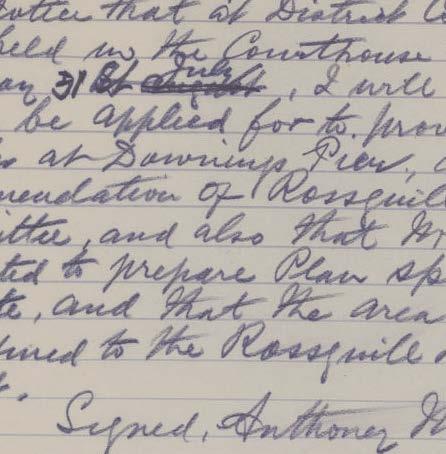 otice that at District C
held in the Courthouse
ay 31st July, I will
be applied for to prov
s at Downings Pier,
mendation of Rossguill
ittee, and also that M
ted to prepare Plan sp
te, and that the area
fined to the Rossguill
Signed, Anthony M